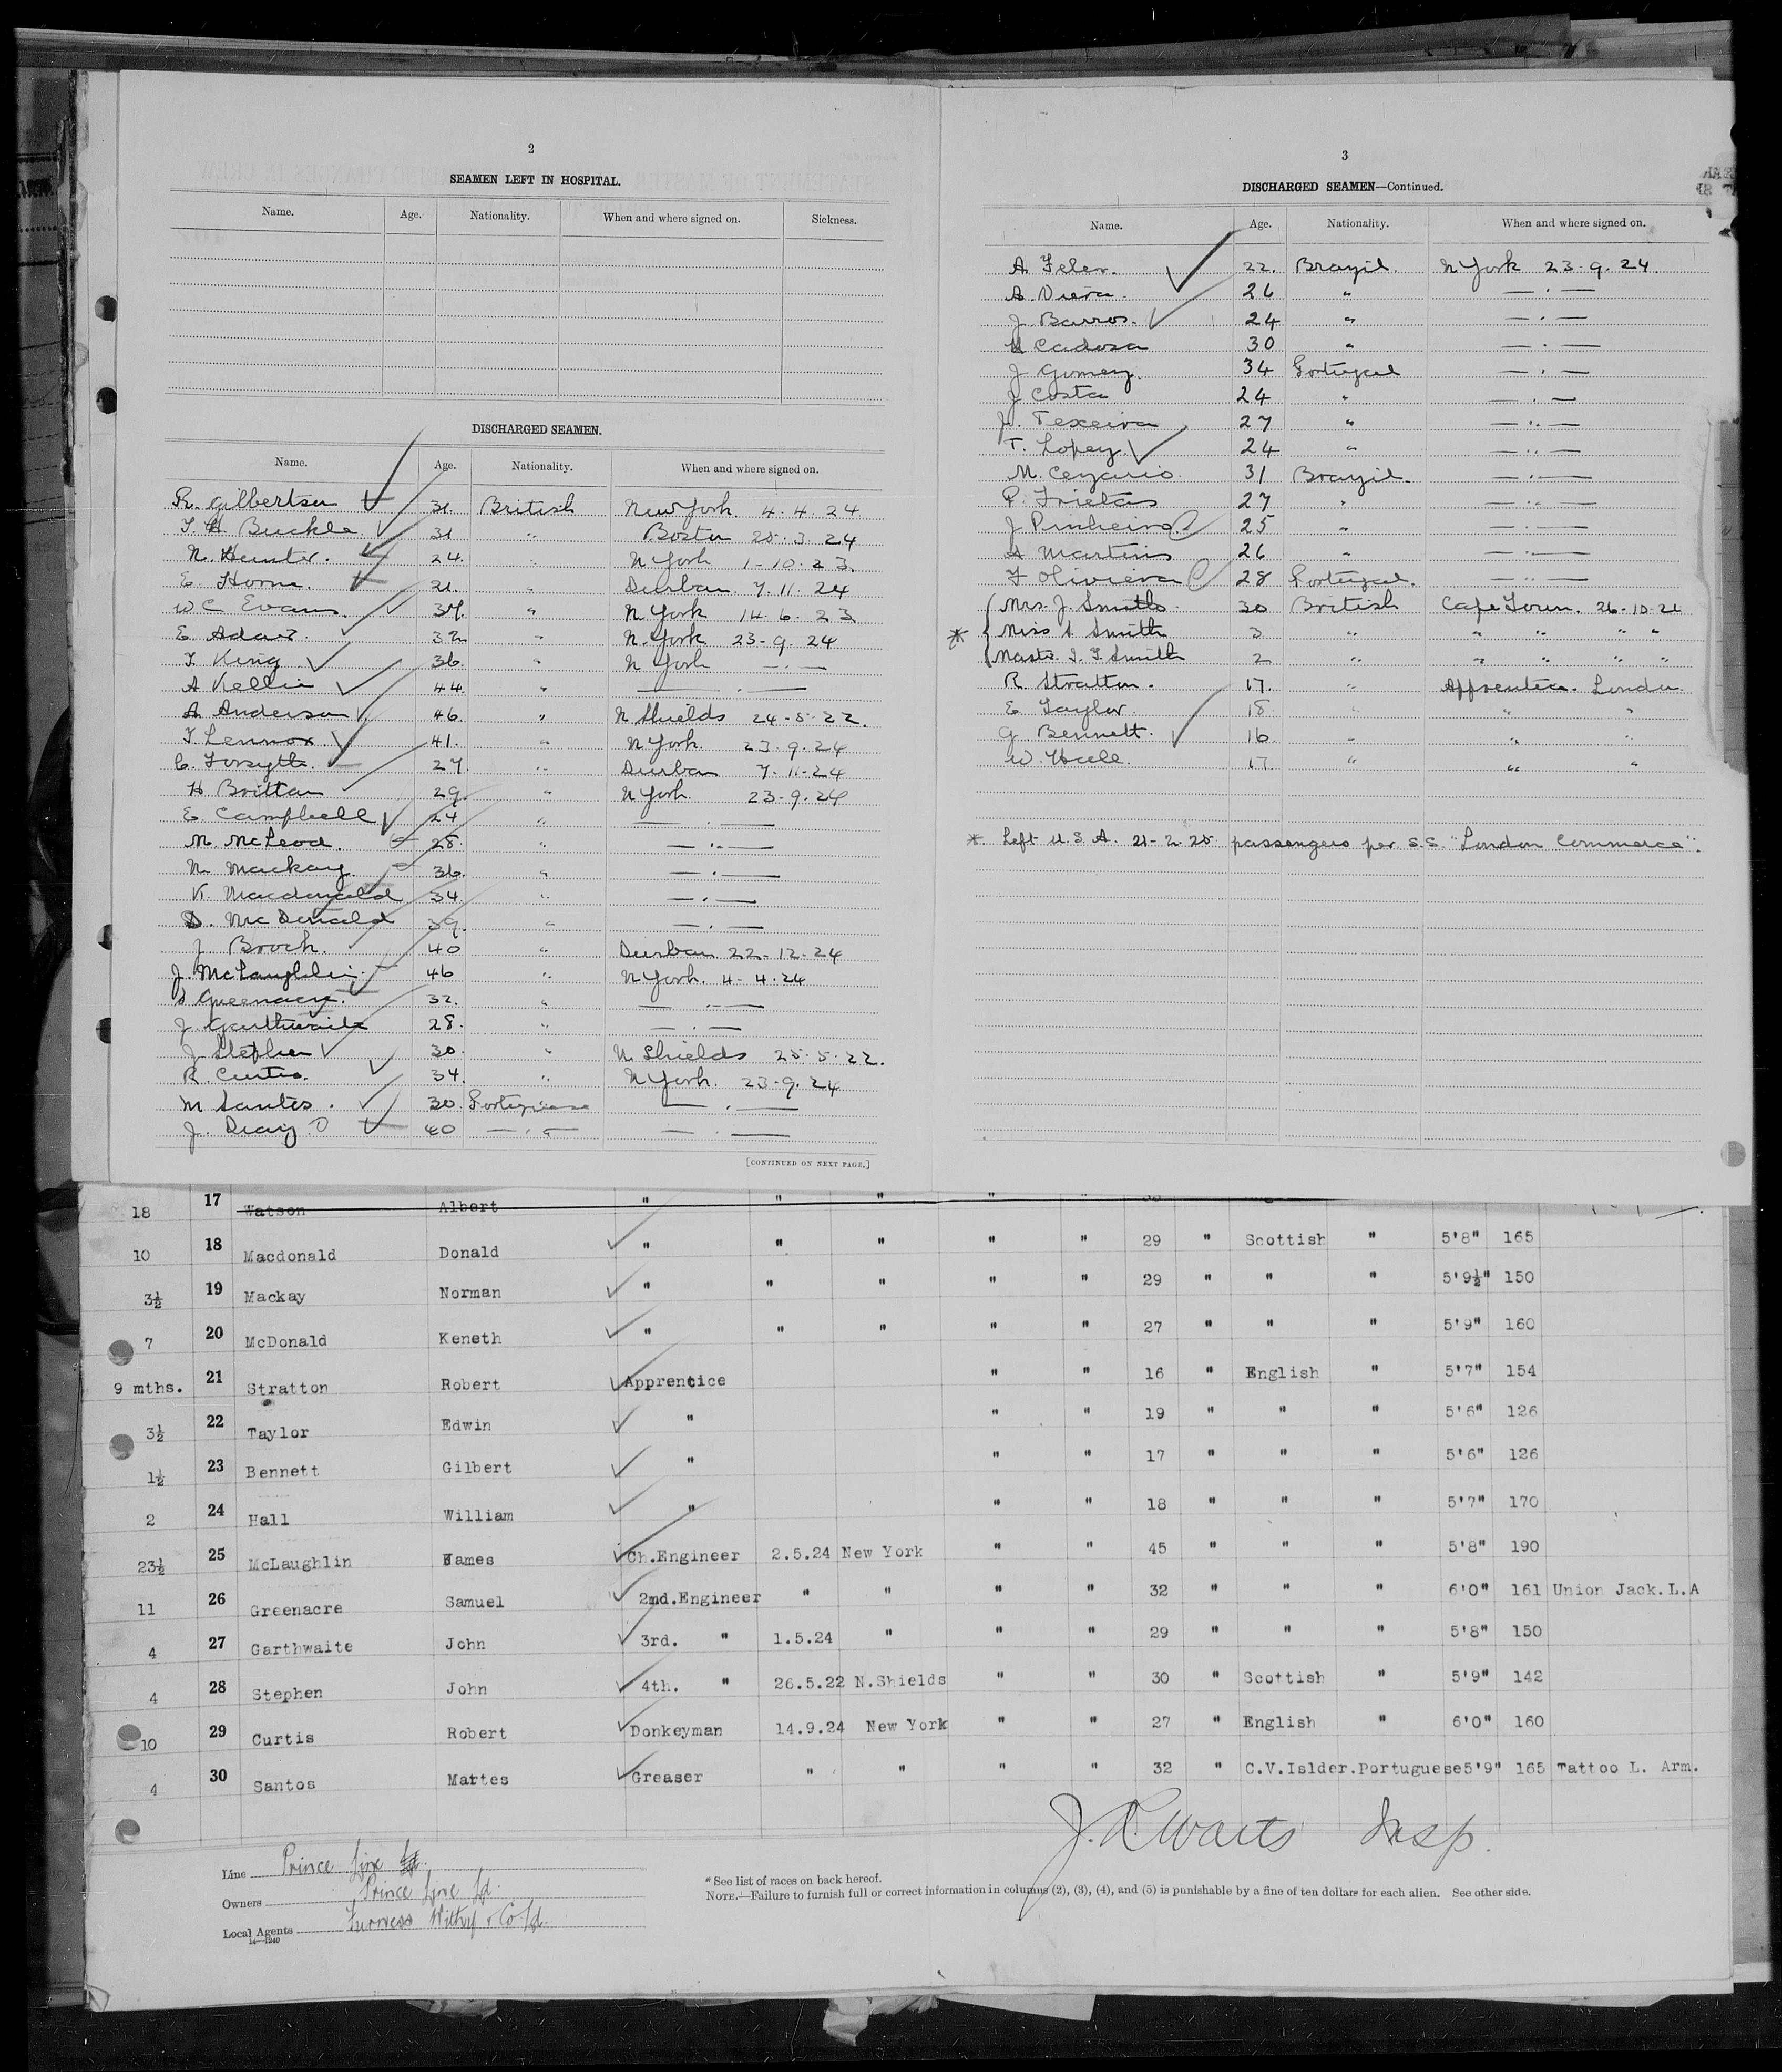 2
SEAMEN LEFT IN HOSPITAL.
Name. Age. Nationality. When and where signed on. Sickness.
DISCHARGED SEAMEN.
Name. Age. Nationality. When and where signed on.
R. Gilbertson 31. British New York 4.4.24
T. H. Buckle 31 " Boston 25.3.24
N. Hunter. 24. " N York 1-10-23.
E. Horne. 21. " Durban 7.11.24
W C Evans. 37. " N York 14.6.23
E. Adair. 32 " N York 23-9.24
T. King 36. " N York —.—
A Kellie 44. " —.—
A. Anderson 46. " N Shields 24-5-22.
T. Lennox. 41. " N York. 23.9.24
C. Forsyth. 27. " Durban 7-11-24
H Brittan 29. " N York. 23-9.24
E Campbell 24 " —.—
M. McLeod. 28. " —..—
N. Mackay. 36. " —.—
K. Macdonald 34. " —.—
D. McDonald 39. " —.—
J. Broch. 40 " Durban 22-12-24
J. McLaughlin. 46 " N York. 4-4.24
S Greenacre. 32. " —.—
J Garthwaite 28. " —.—
J Stephen 30. " N. Shields 25.5.22.
R. Curtis. 34. " N York. 23-9.24
M Santos. 30. Portuguese —.—
J. 40 —.— —.—
[CONTINUED ON NEXT PAGE.]
3
DISCHARGED SEAMEN—Continued.
Name. Age. Nationality. When and where signed on.
A 22. Brazil. N York 23.9.24.
A. Viera. 26 " —.—
J Barros. 24 " —.—
Cadosa 30 " —.—
J Gomez. 34 Portugal —.—
J Costa 24 " —..—
Texeira 27 " —..—
T. Lopez. 24 " —..—
M. Cezario. 31 Brazil. —.—
P. Frietas 27 " —..—
J Pinheiro 25 " —.—
A Martins 26 " —.—
F Oliviera 28 Portugal. —.—
Mrs. J. Smith. 30 British Cape Town. 26-10-24
* Miss S Smith 3 " " " " "
Mastr. J. F. Smith 2 " " " " "
R. Stratton. 17. " Apprentice. London.
E Taylor. 18 " " "
G Bennett. 16 " " "
W. Hall. 17 " " "
* Left U.S.A. 21-2.25 passengers per S.S. "London Commerce".
18 17 Watson Albert " " " " "
10 18 Macdonald Donald " " " " " 29 " Scottish " 5'8" 165
3½ 19 Mackay Norman " " " " " 29 " " " 5'9½" 150
7 20 McDonald Keneth " " " " " 27 " " " 5'9" 160
9 mths. 21 Stratton Robert Apprentice " " 16 " English " 5'7" 154
3½ 22 Taylor Edwin " " " 19 " " " 5'6" 126
1½ 23 Bennett Gilbert " " " 17 " " " 5'6" 126
2 24 Hall William " " " 18 " " " 5'7" 170
23½ 25 McLaughlin James Ch.Engineer 2.5.24 New York " " 45 " " " 5'8" 190
11 26 Greenacre Samuel 2nd.Engineer " " " " 32 " " " 6'0" 161 Union Jack.L.A
4 27 Garthwaite John 3rd. " 1.5.24 " " " 29 " " " 5'8" 150
4 28 Stephen John 4th. " 26.5.22 N.Shields " " 30 " Scottish " 5'9" 142
10 29 Curtis Robert Donkeyman 14.9.24 New York " " 27 " English " 6'0" 160
4 30 Santos Mattes Greaser " " " " 32 " C.V.Islder.Portuguese 5'9" 165 Tattoo L. Arm.
Insp.
Line Prince Line Ld.
Owners Prince Line Ld.
Local Agents Furness Withy & Co. Ld.
14—1240
* See list of races on back hereof.
NOTE.—Failure to furnish full or correct information in columns (2), (3), (4), and (5) is punishable by a fine of ten dollars for each alien. See other side.